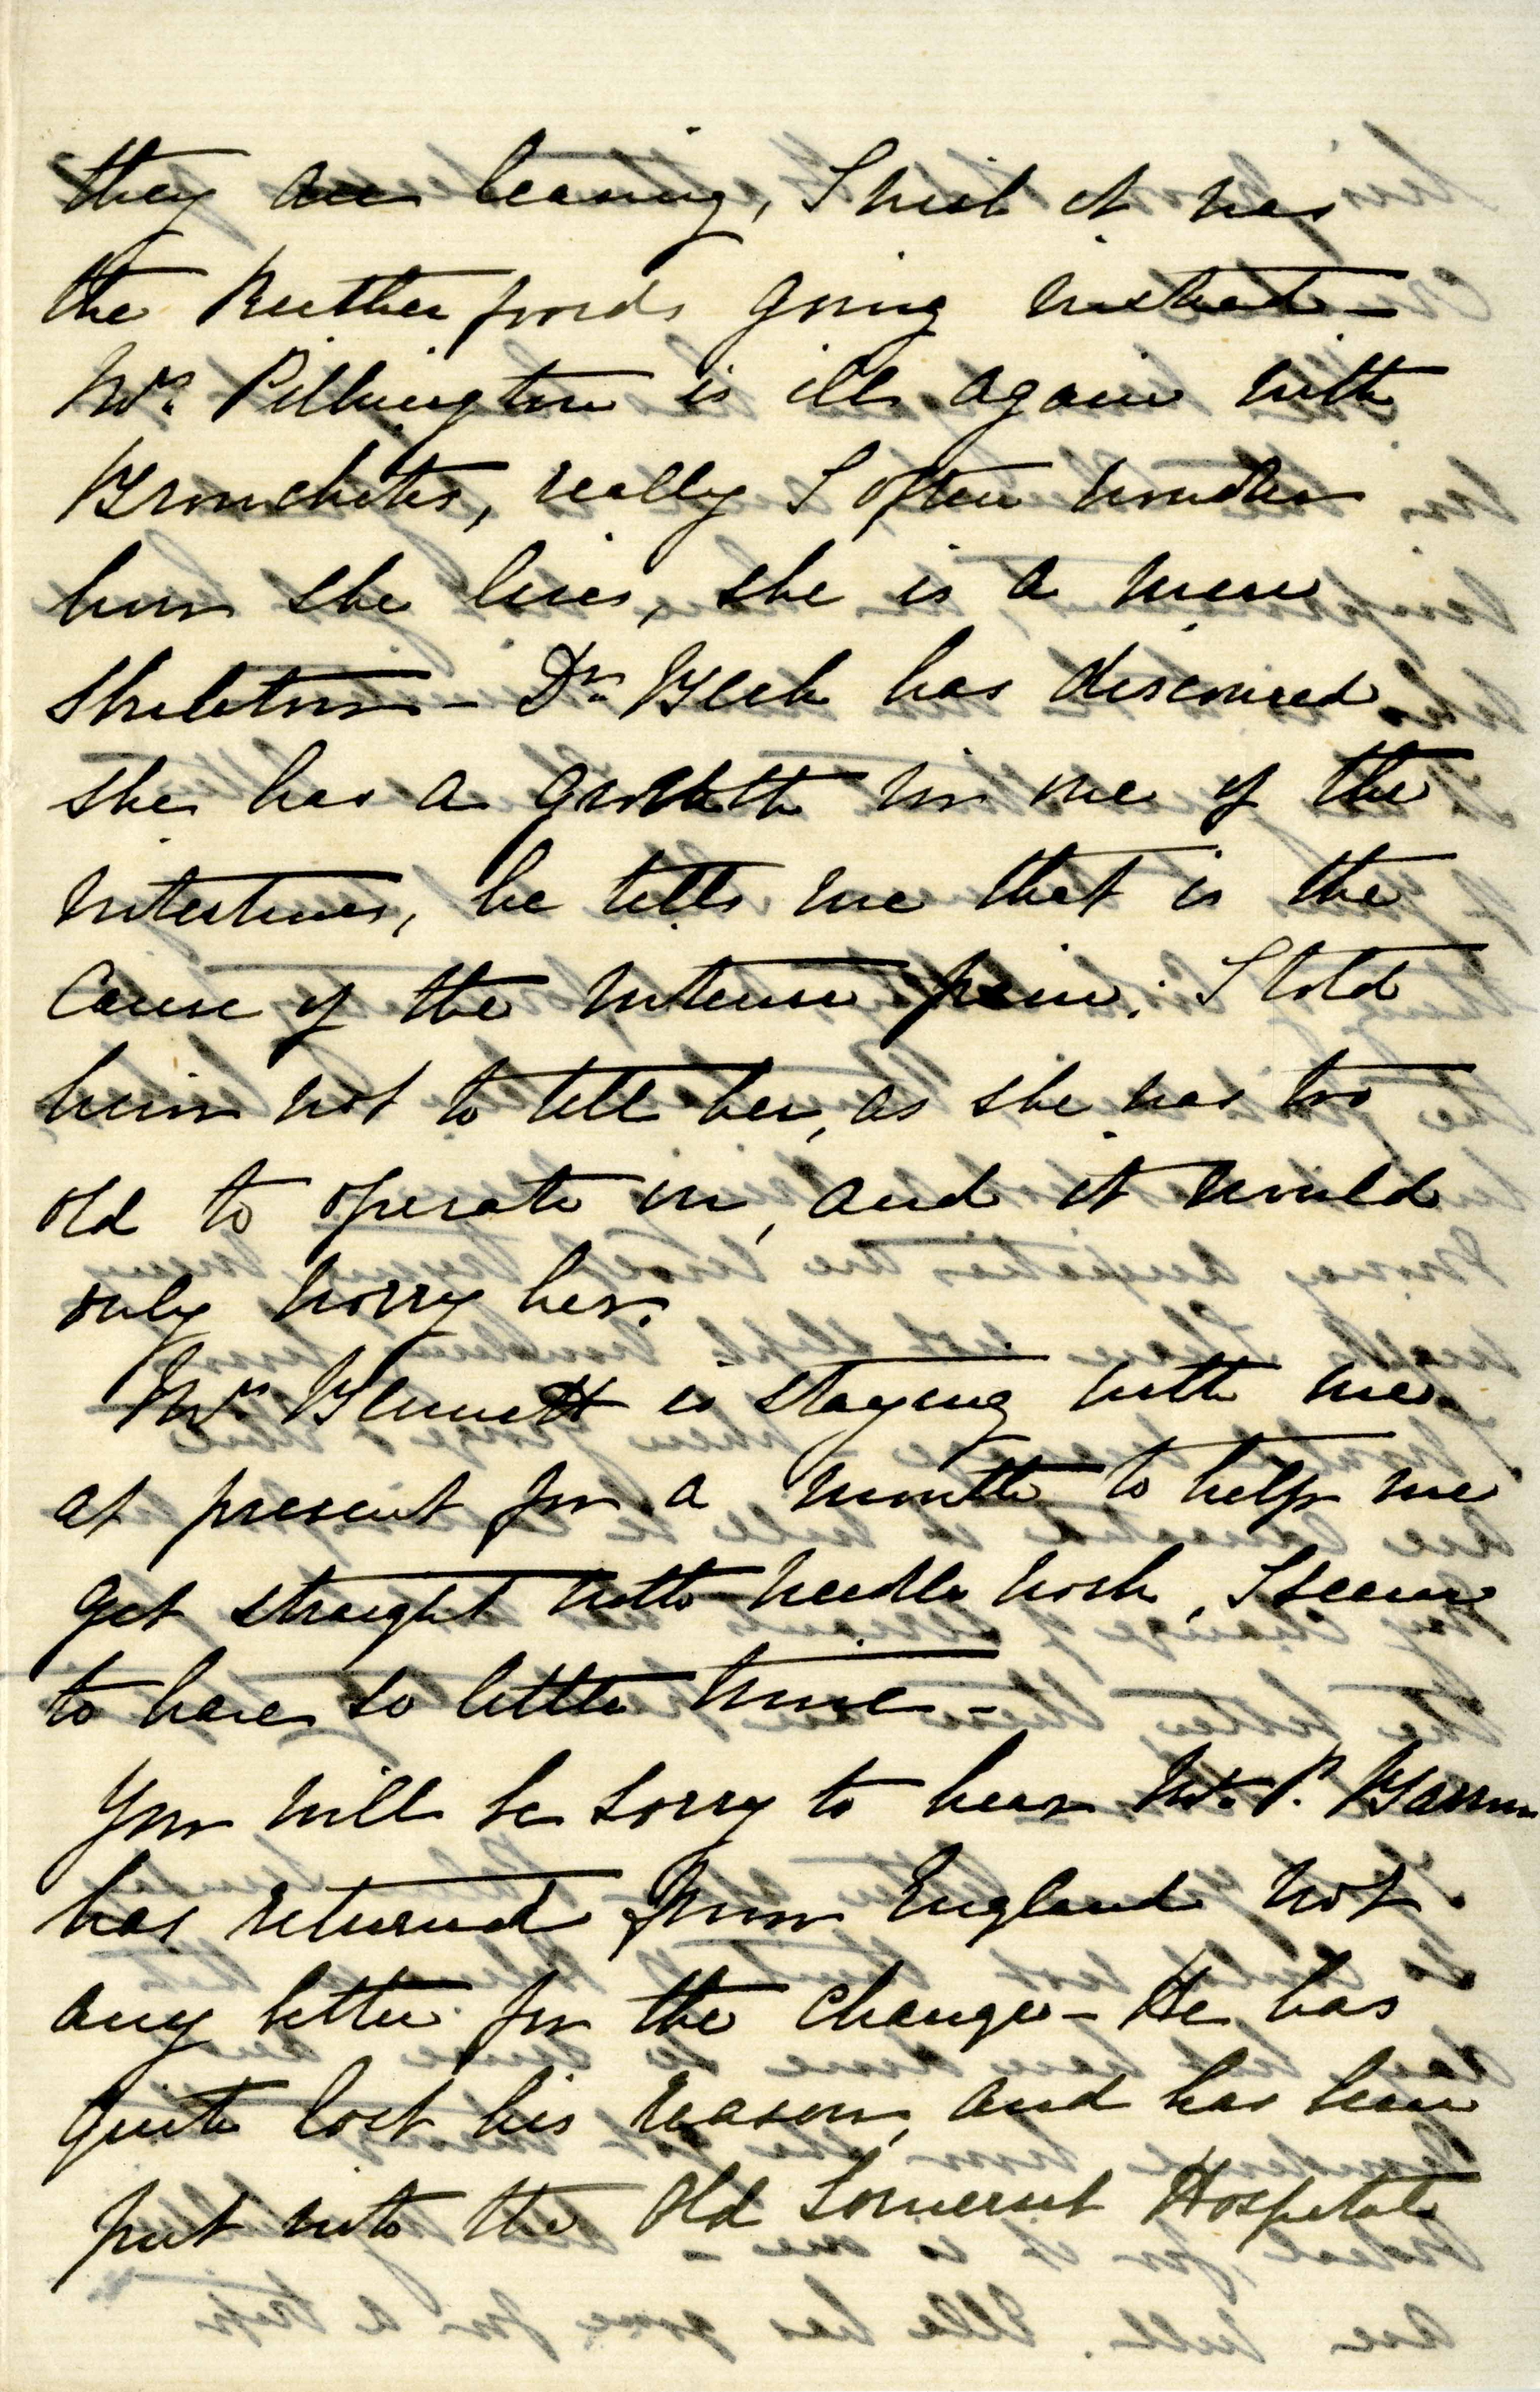 they are leaving, I wish it was
the Rutherfords going instead -
Mrs. Pillkington is ill again with
Bronchites, really I often wonder
how she lives, she is a mere
skeleton - Dr. Beck has discovered
she has a growth in one of the
intestines, he tells me that is the
cause of the intense pain; I told
him not to tell her, as she was too
old to operate on, and it would
only worry her.
Mrs. Bennett is staying with me
at present for a month to help me
get straight with needle work, I seem
to have so little time -
You will be sorry to hear Mr. P.
has returned from England not
any better for the change - He has
quite lost his reason, and has been
put into the Old Somerset Hospital